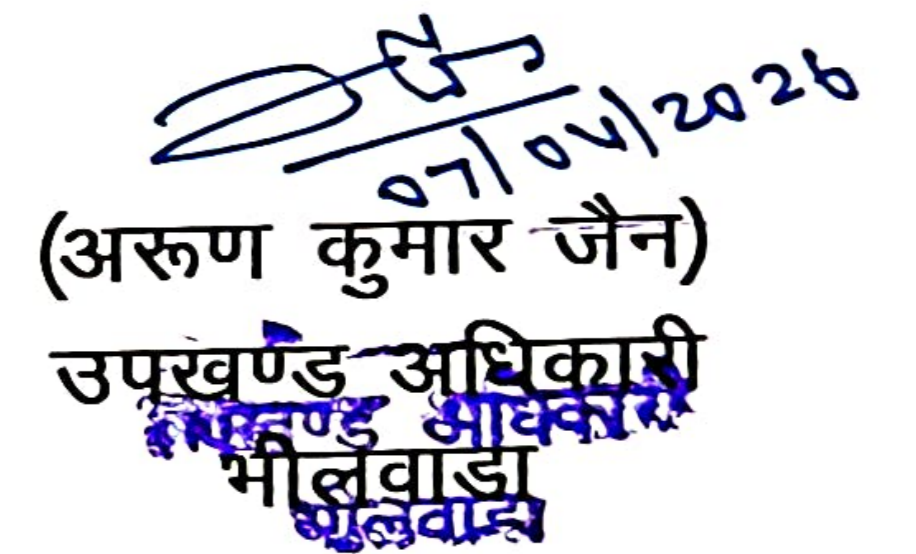 07/04/2026
(अरूण कुमार जैन)
उपखण्ड अधिकारी
उपखण्ड अधिकारी
भीलवाडा
भीलवाडा